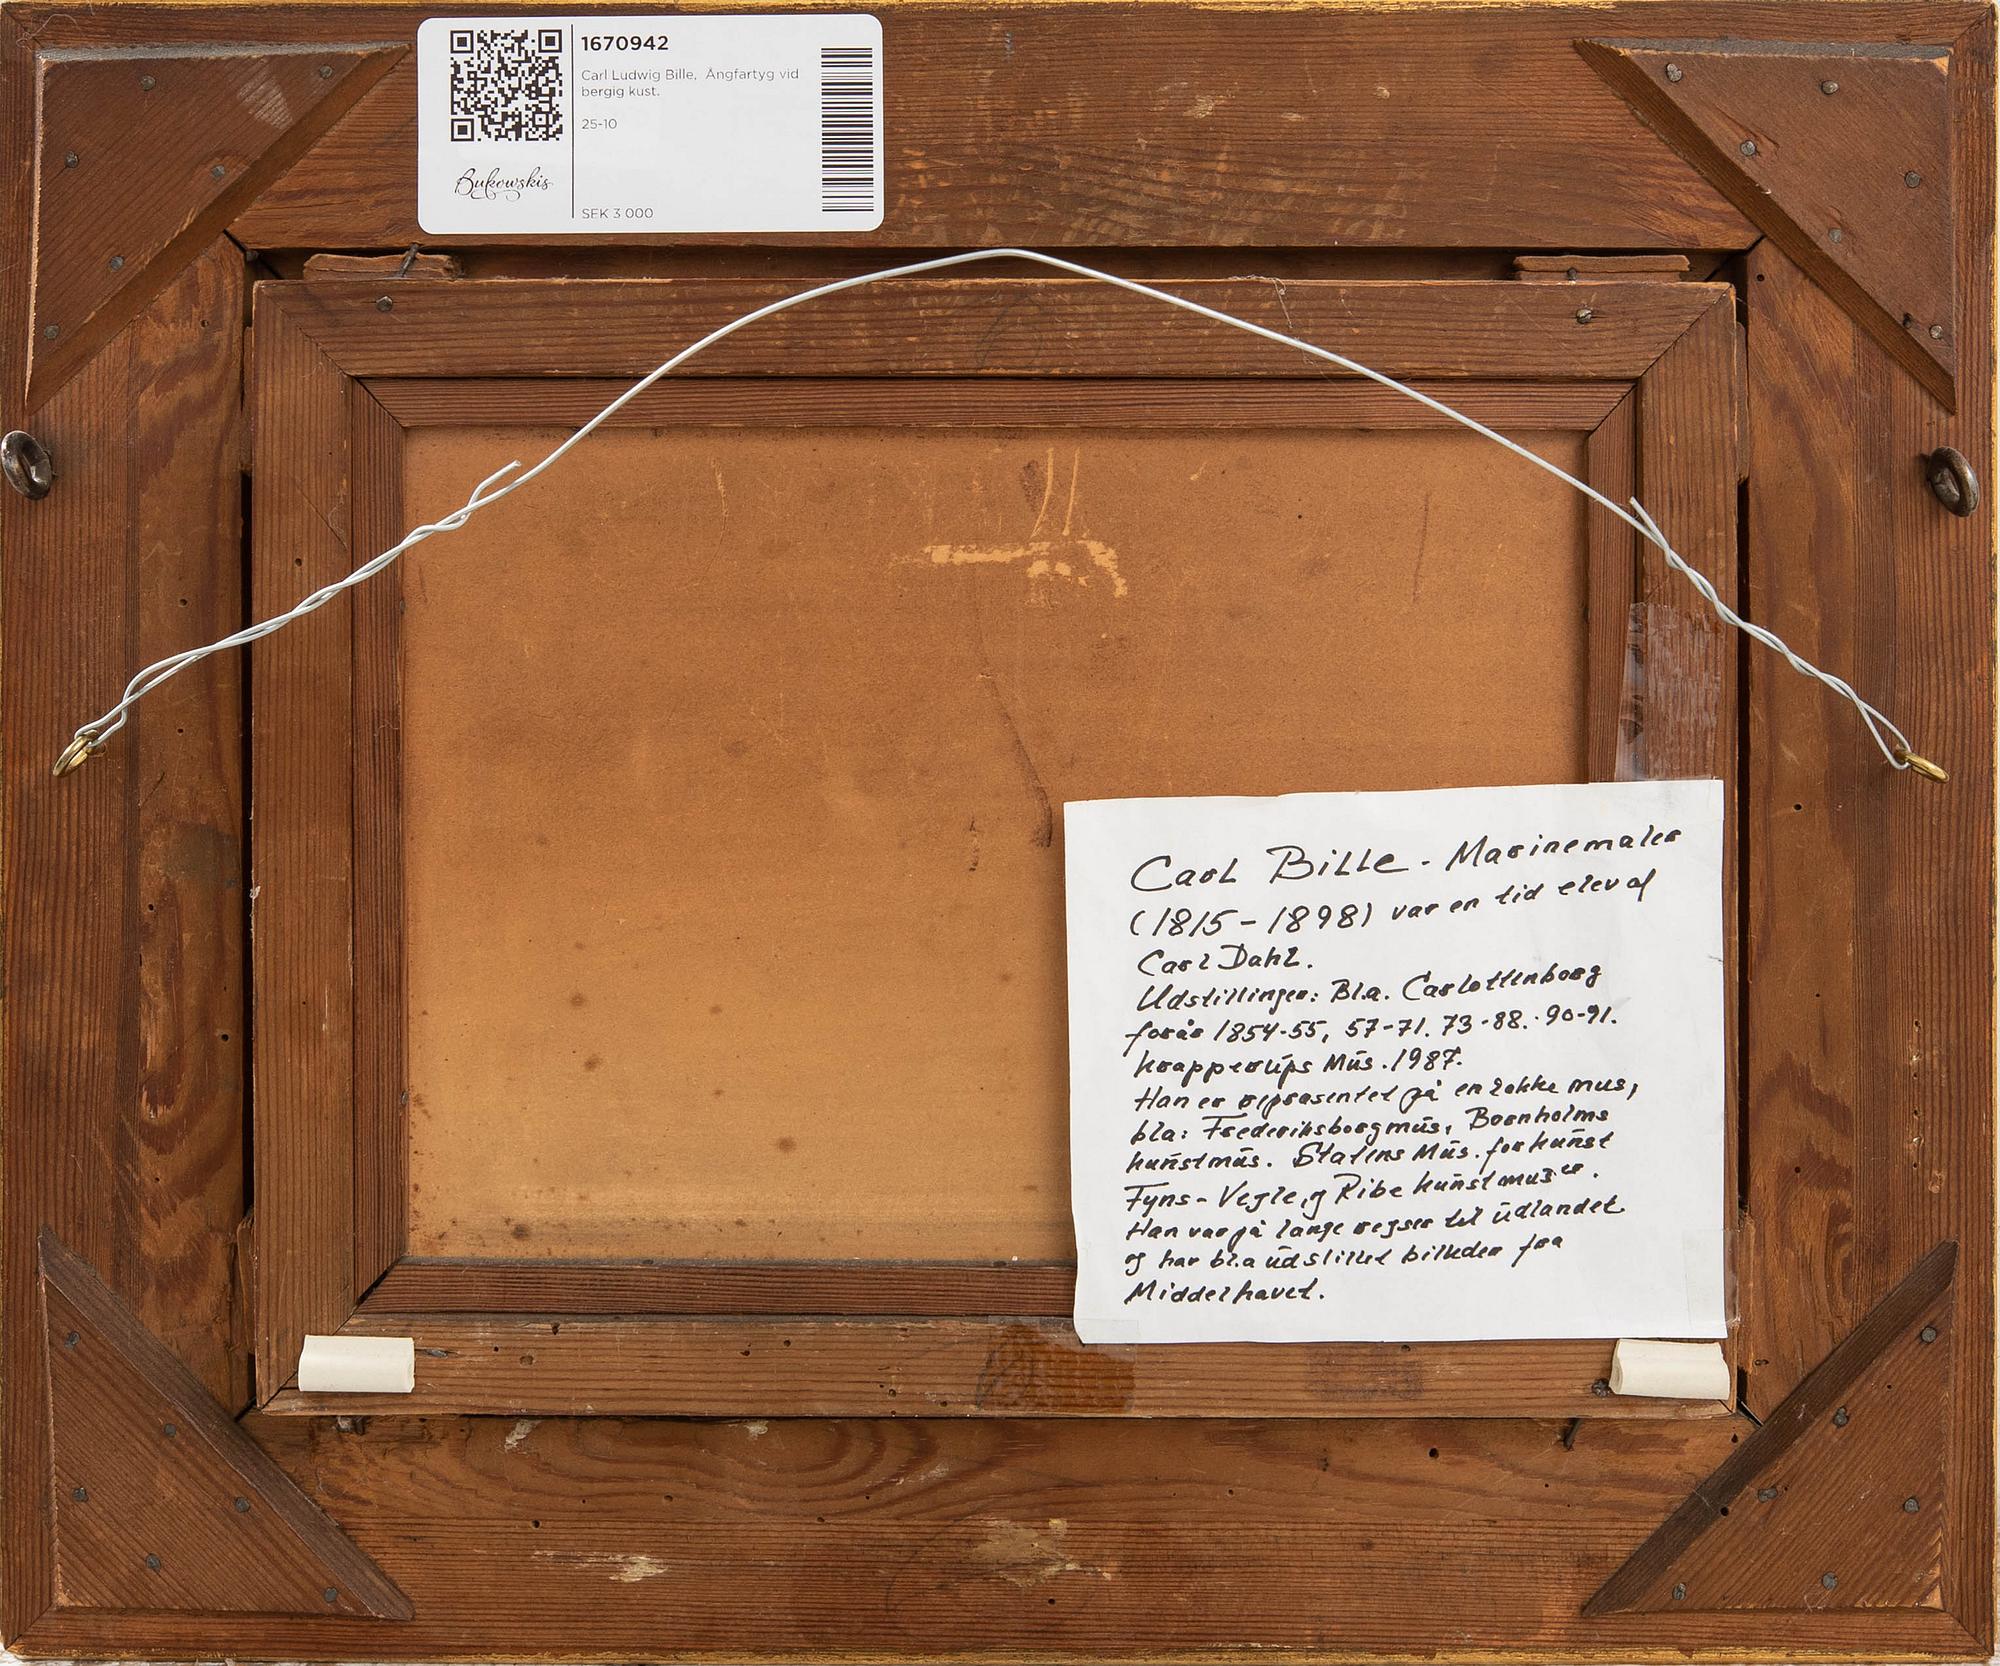 1670942
Carl Ludwig Bille, Ångfartyg vid
bergig kust.
25-10
Bukowskis
SEK 3 000
Carl Bille - Marinemaler
(1815-1898) var en tid elev af
Carl Dahl.
Udstillinger: Bl.a. Carlottenborg
forår 1854-55, 57-71. 73-88. 90-91.
Krapperups Mus. 1987.
Han er repræsentet på en række mus,
bla: Frederiksborgmus, Bornholms
kunstmus. Statens Mus. for kunst
Fyns- Vegle, og Ribe kunstmuser.
Han var på lange regser til udlandet
og har bl.a udstillet billeder fra
Middelhavet.